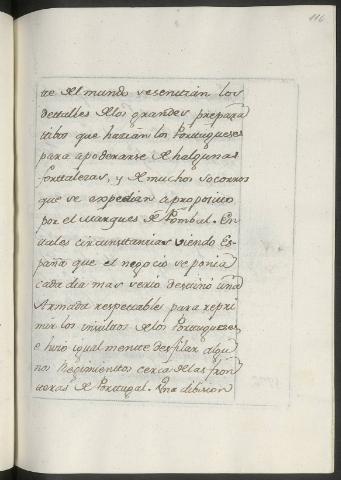 116
te del mundo resentian los
dettalles delos grandes prepara
tibos que hazian los Portugueses
para apoderarse de halgunas
forttalezas, y de muchos socorros
que se expedian apropositto
por el Marques de Pombal. En
tales circunstancias viendo Es-
paña que el negocio se ponia
cada dia mas serio destinó una
Armada respettable para repri
mir los insultos delos Portugueses
e hizo igualmente desfilar algu
nos Regimientos cerca delas fron
teras de Portugal. Una dibision